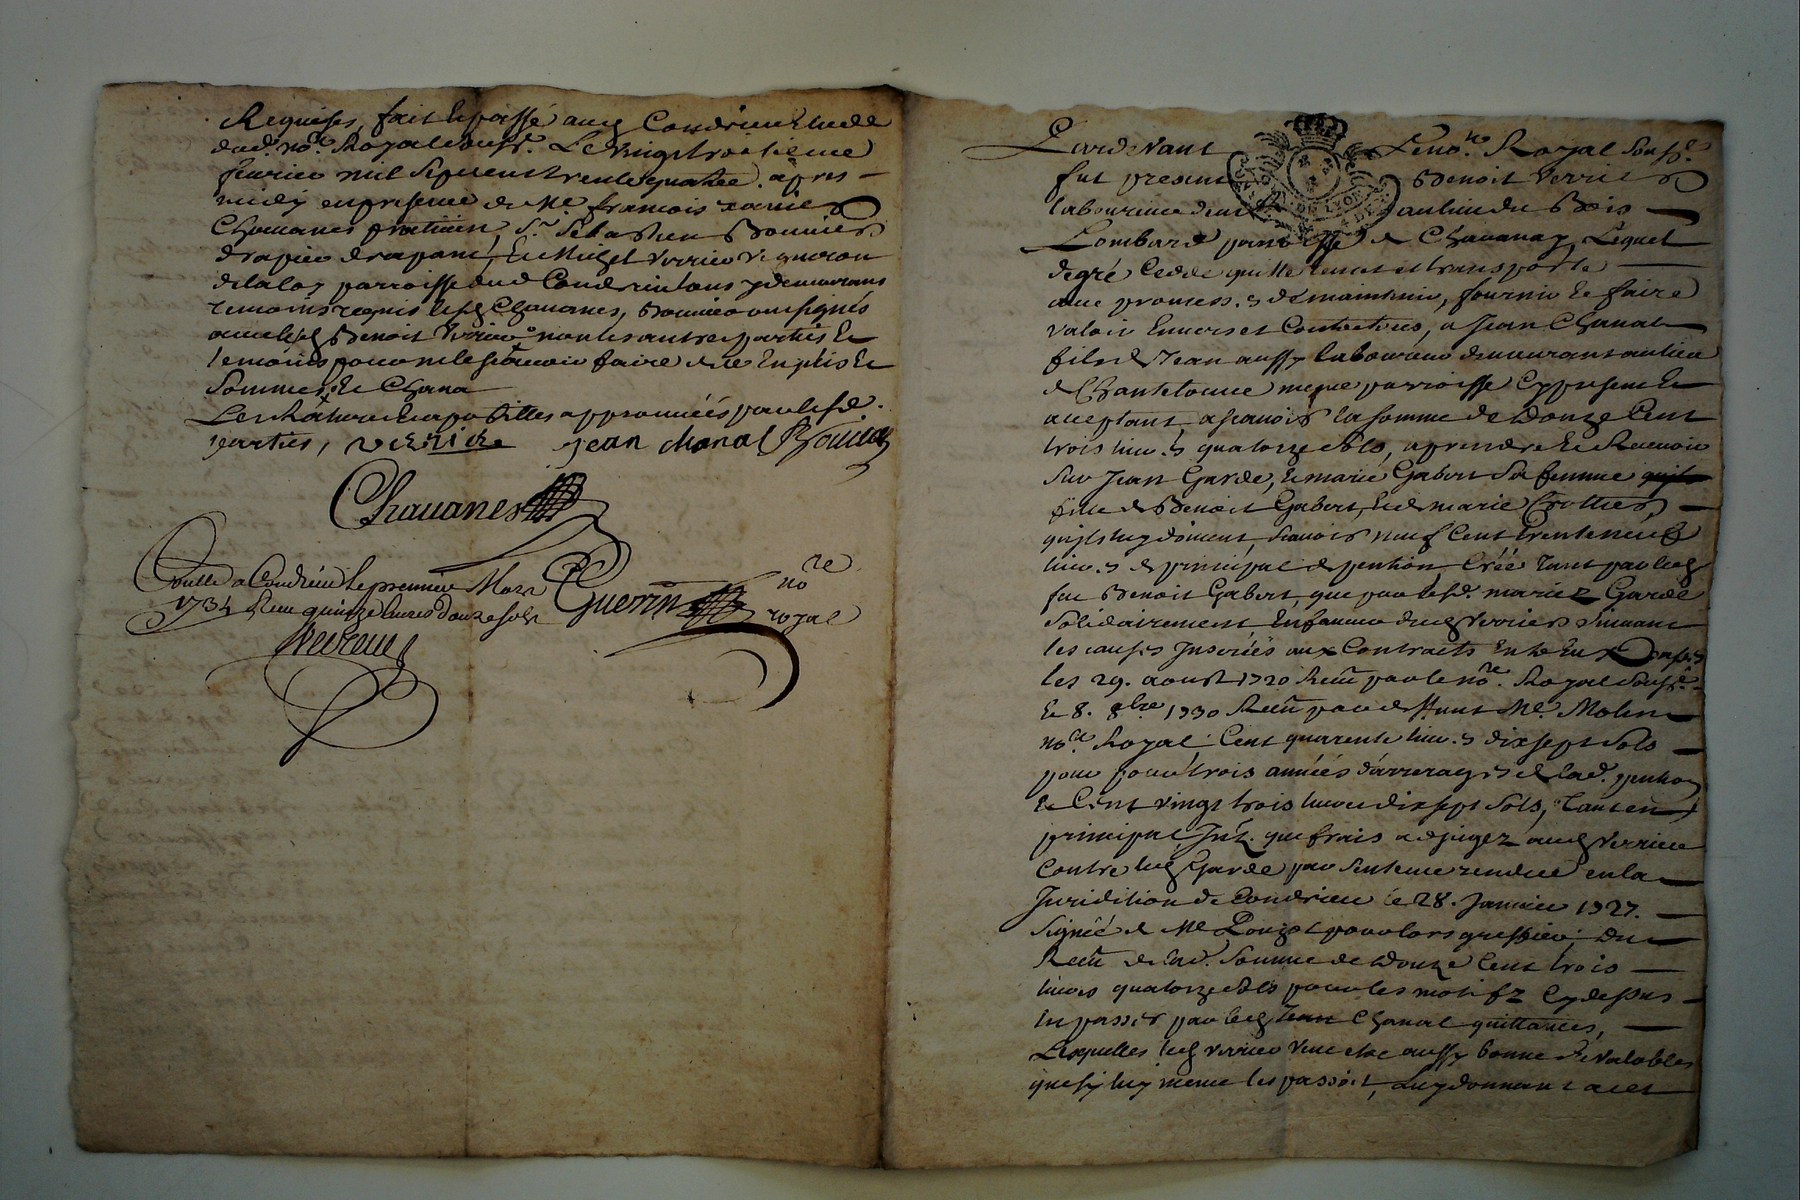 Requises, fait et passé aud Condrieu Etude
dud. no.re Royal soubs.né Le vingt troisieme
fevrier mil sept cent trente quatre apres
midy en presence de Me. francois xavier
Chauanes praticien, Sr. Sebastien Bonnier
drapier drapant, Et Michel Verrier vigneron
de la paroisse dud Condrieu tous y demeurans
temoins requis lesd Chauanes, Bonnier ont signés
avec led Benoit Verrier non les autres parties Et
temoins pour ne le scavoir faire de ce Enquis Et
Sommés, Et Chana
Les Rature Et apostilles approuvées par lesd.
parties, verrier Jean chanal Bonnier
Chauanes
Conttle a Condrieu le premier Mars
1734 Reçu quinze livres douze sols
Guerrin no re
royal
Pardevant Le no.re Royal soubs.né
fut present Benoit Verrier
laboureur demt au lieu du Bois
Lombard paroisse de Chauanay, Lequel
de gré Cedde quitte remet et transporte
avec promesses de maintenir, fournir Et faire
valoir Envers et Contre tous, a Jean Chanal
fils de Jean aussy laboureur demeurant au lieu
de Chantelouve meme parroisse Cy present Et
acceptant, a scavoir la somme de Douze Cent
trois livres quatorze sols, a prendre Et Recevoir
sur Jean Garde, Et marie Gabert sa femme
fille de Benoit Gabert, Et de marie Crottier,
qu'ils luy doivent, scavoir neuf Cent trente neuf
livres de principal de pention Créée Tant par led
feu Benoit Gabert, que par lesd. mariez Garde
Solidairement En faveur dud Verrier suivant
les causes Inserées aux Contracts Entre Eux passés
les 29. aoust 1720 Receu par le no.re Royal soubs.né
Et 8. 8bre 1730 Receu par deffunt Me. Molin
no.re Royal, Cent quarente livres dix sept sols
pour trois années d'arrerages de lad. pention
Et Cent vingt trois livres dix sept sols, Tant en
principal Int. que frais adjugez aud Verrier
Contre led Garde par sentence rendue en la
Juridition de Condrieu le 28. Janvier 1727.
Signée de Me pour lors greffier, Du
Receu de lad. somme de Douze Cent trois
livres quatorze sols pour les motifz Cy dessus
En passer par led Jean Chanal quittances,
Lesquelles led Verrier veut etre aussy bonne Et valables
que sy luy meme les passoit, Luy donnant a cet